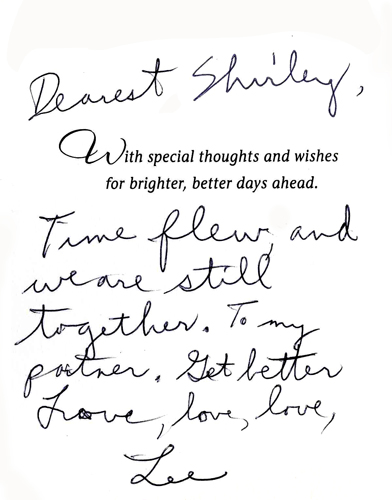 Dearest Shirley,
With special thoughts and wishes
for brighter, better days ahead.
Time flew, and
we are still
together. To my
partner. Get better
Love, love, love,
Lee